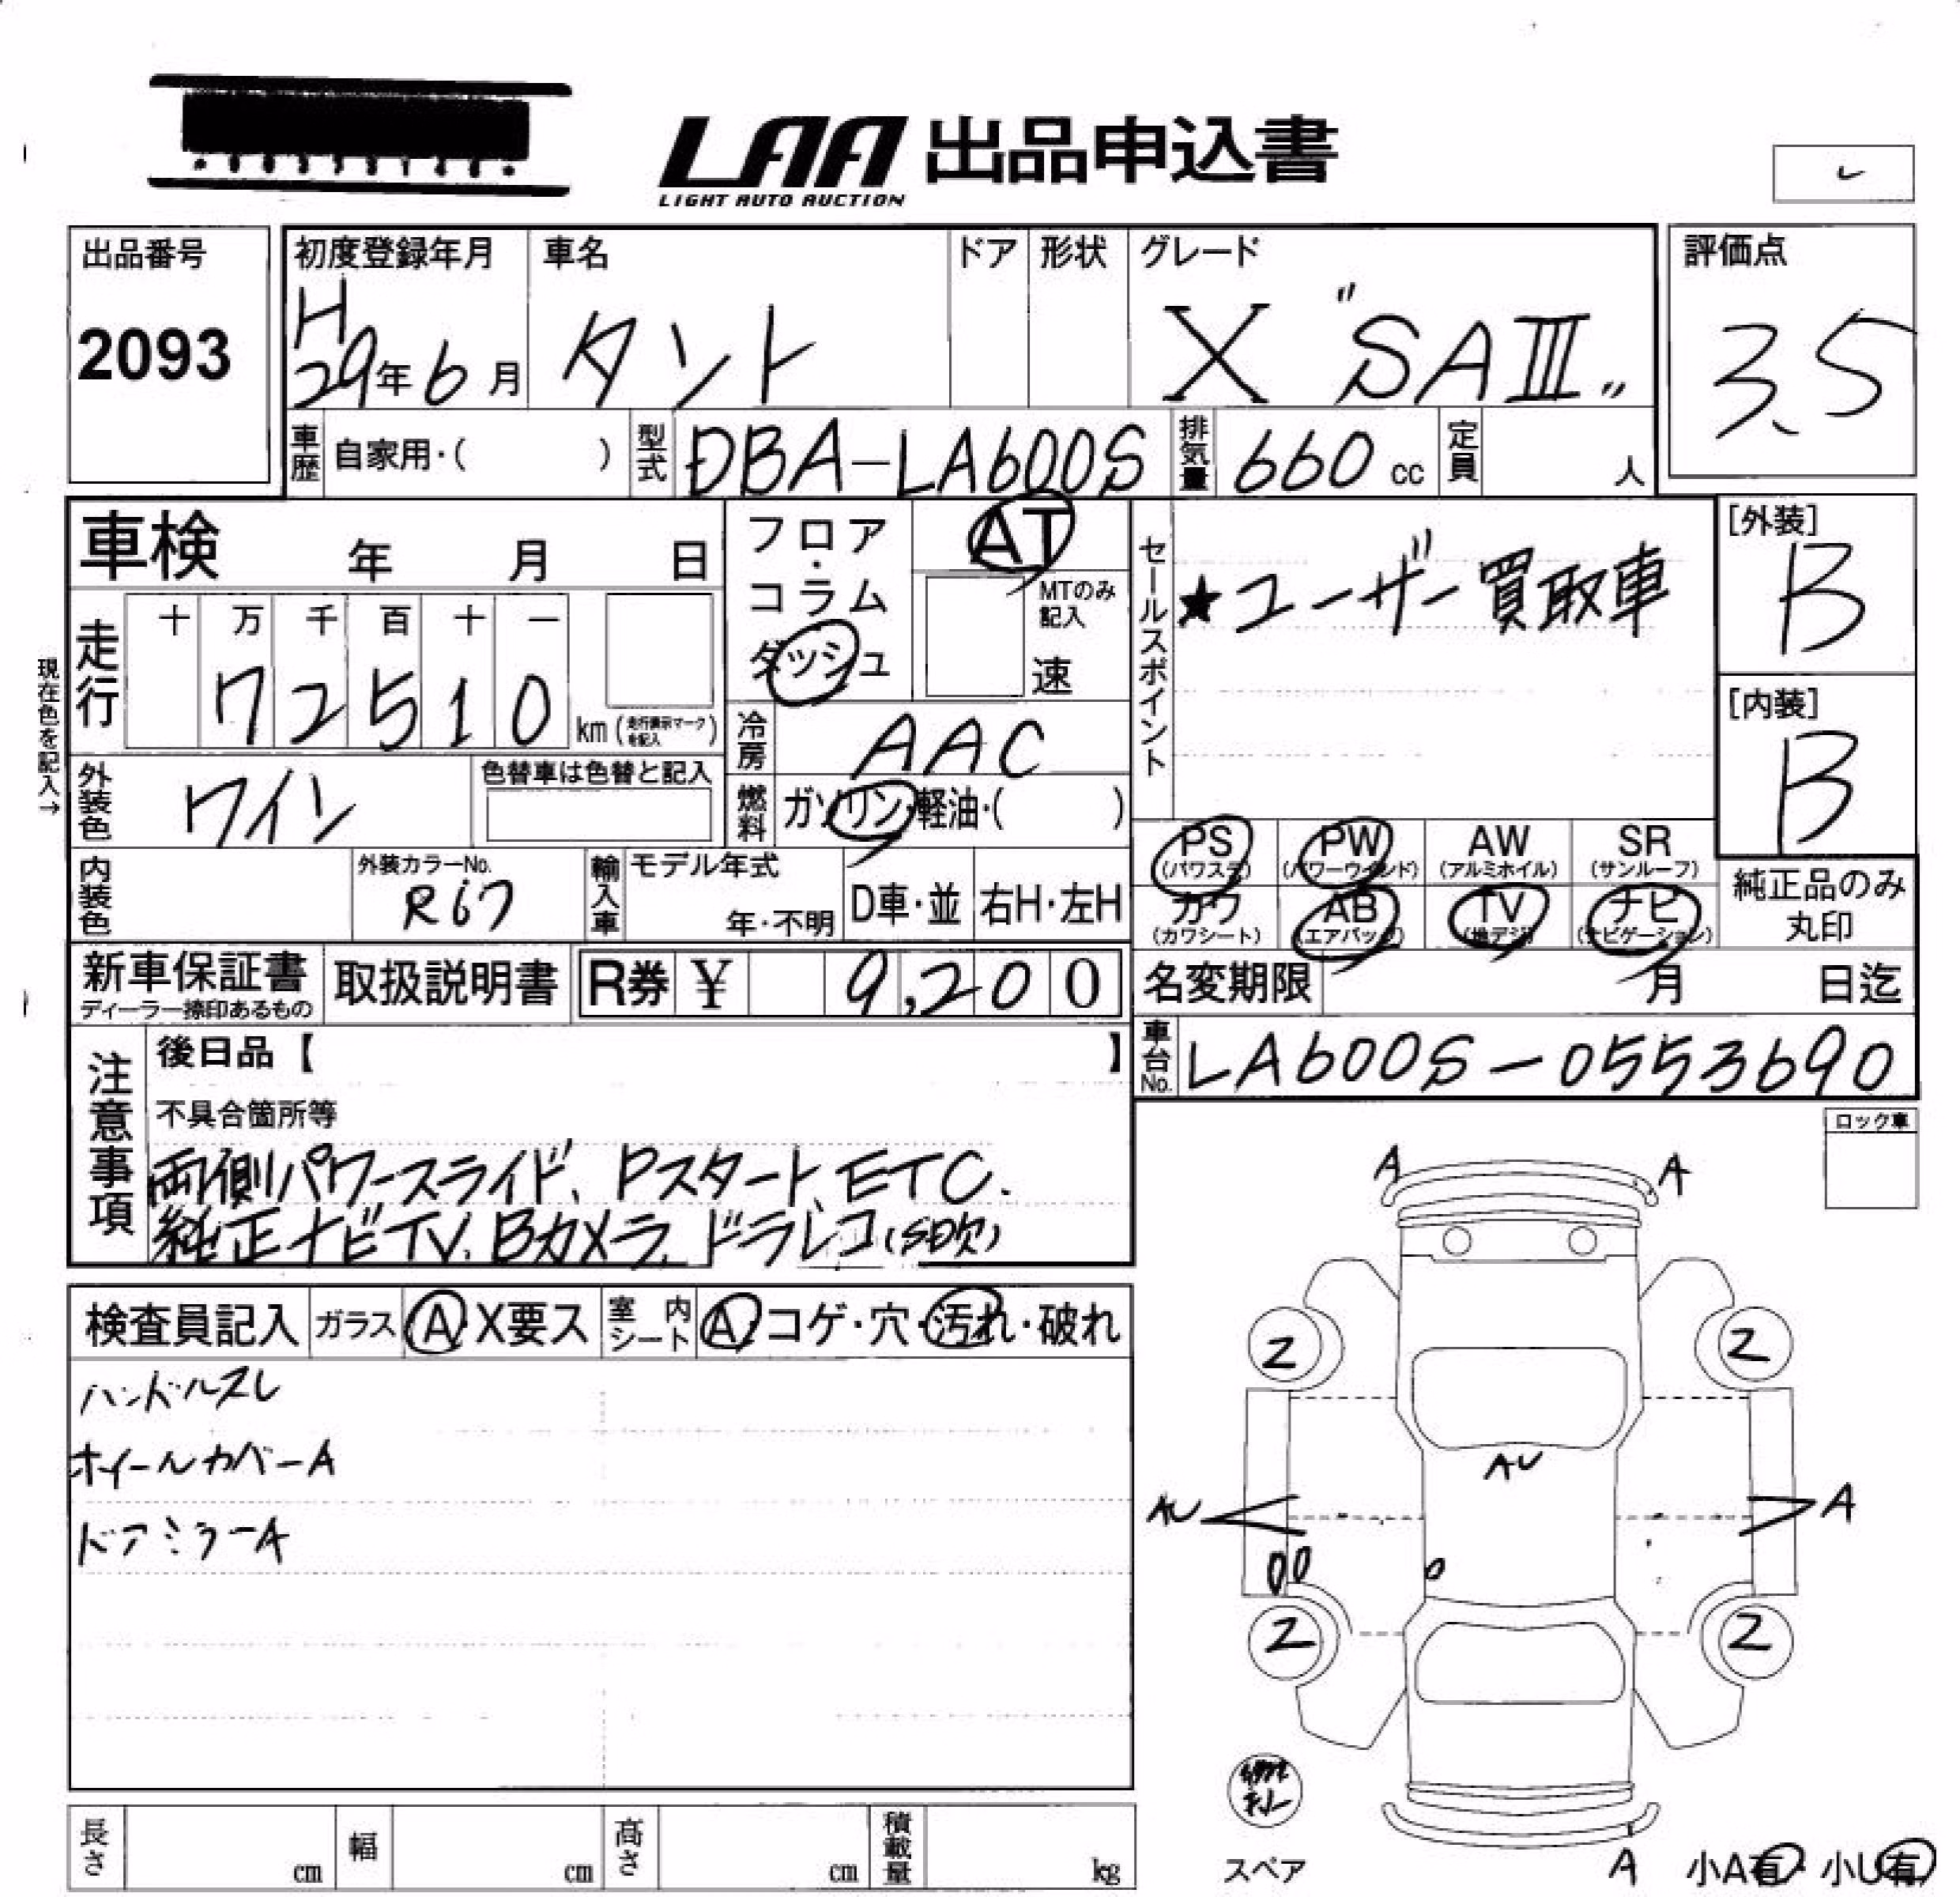 LAA 出品申込書
LIGHT AUTO AUCTION
出品番号
2093
初度登録年月
H
29年6月
車名
タント
ドア
形状
グレード
X "SAⅢ"
評価点
3.5
車歴 自家用・( )
型式 DBA-LA600S
排気量 660 cc
定員 人
車検 年 月 日
フロア・コラム
ダッシュ
AT
MTのみ記入
速
セールスポイント
★ユーザー買取車
[外装]
B
[内装]
B
現在色を記入→
走行
十 万 千 百 十 一
72510 km (走行表示マークを記入)
冷房 AAC
外装色 ワイン
色替車は色替と記入
燃料 ガソリン・軽油・( )
内装色
外装カラーNo.
R67
輸入車
モデル年式
年・不明
D車・並
右H・左H
PS (パワステ)
PW (パワーウインド)
AW (アルミホイル)
SR (サンルーフ)
カワ (カワシート)
AB (エアバック)
TV (地デジ)
ナビ (ナビゲーション)
純正品のみ丸印
新車保証書
ディーラー捺印あるもの
取扱説明書
R券 ¥ 9,200
名変期限 月 日迄
車台No. LA600S-0553690
注意事項
後日品【 】
不具合箇所等
両側パワースライド、Pスタート、ETC.
純正ナビTV、Bカメラ、ドラレコ(SD欠)
ロック車
検査員記入
ガラス A・X要ス
室内シート A・コゲ・穴・汚れ・破れ
ハンドルスレ
ホイールカバーA
ドアミラーA
A A
2 2
AU
AU A
00 0
2 2
スペア
A
小A有・小U有
長さ cm
幅 cm
高さ cm
積載量 kg